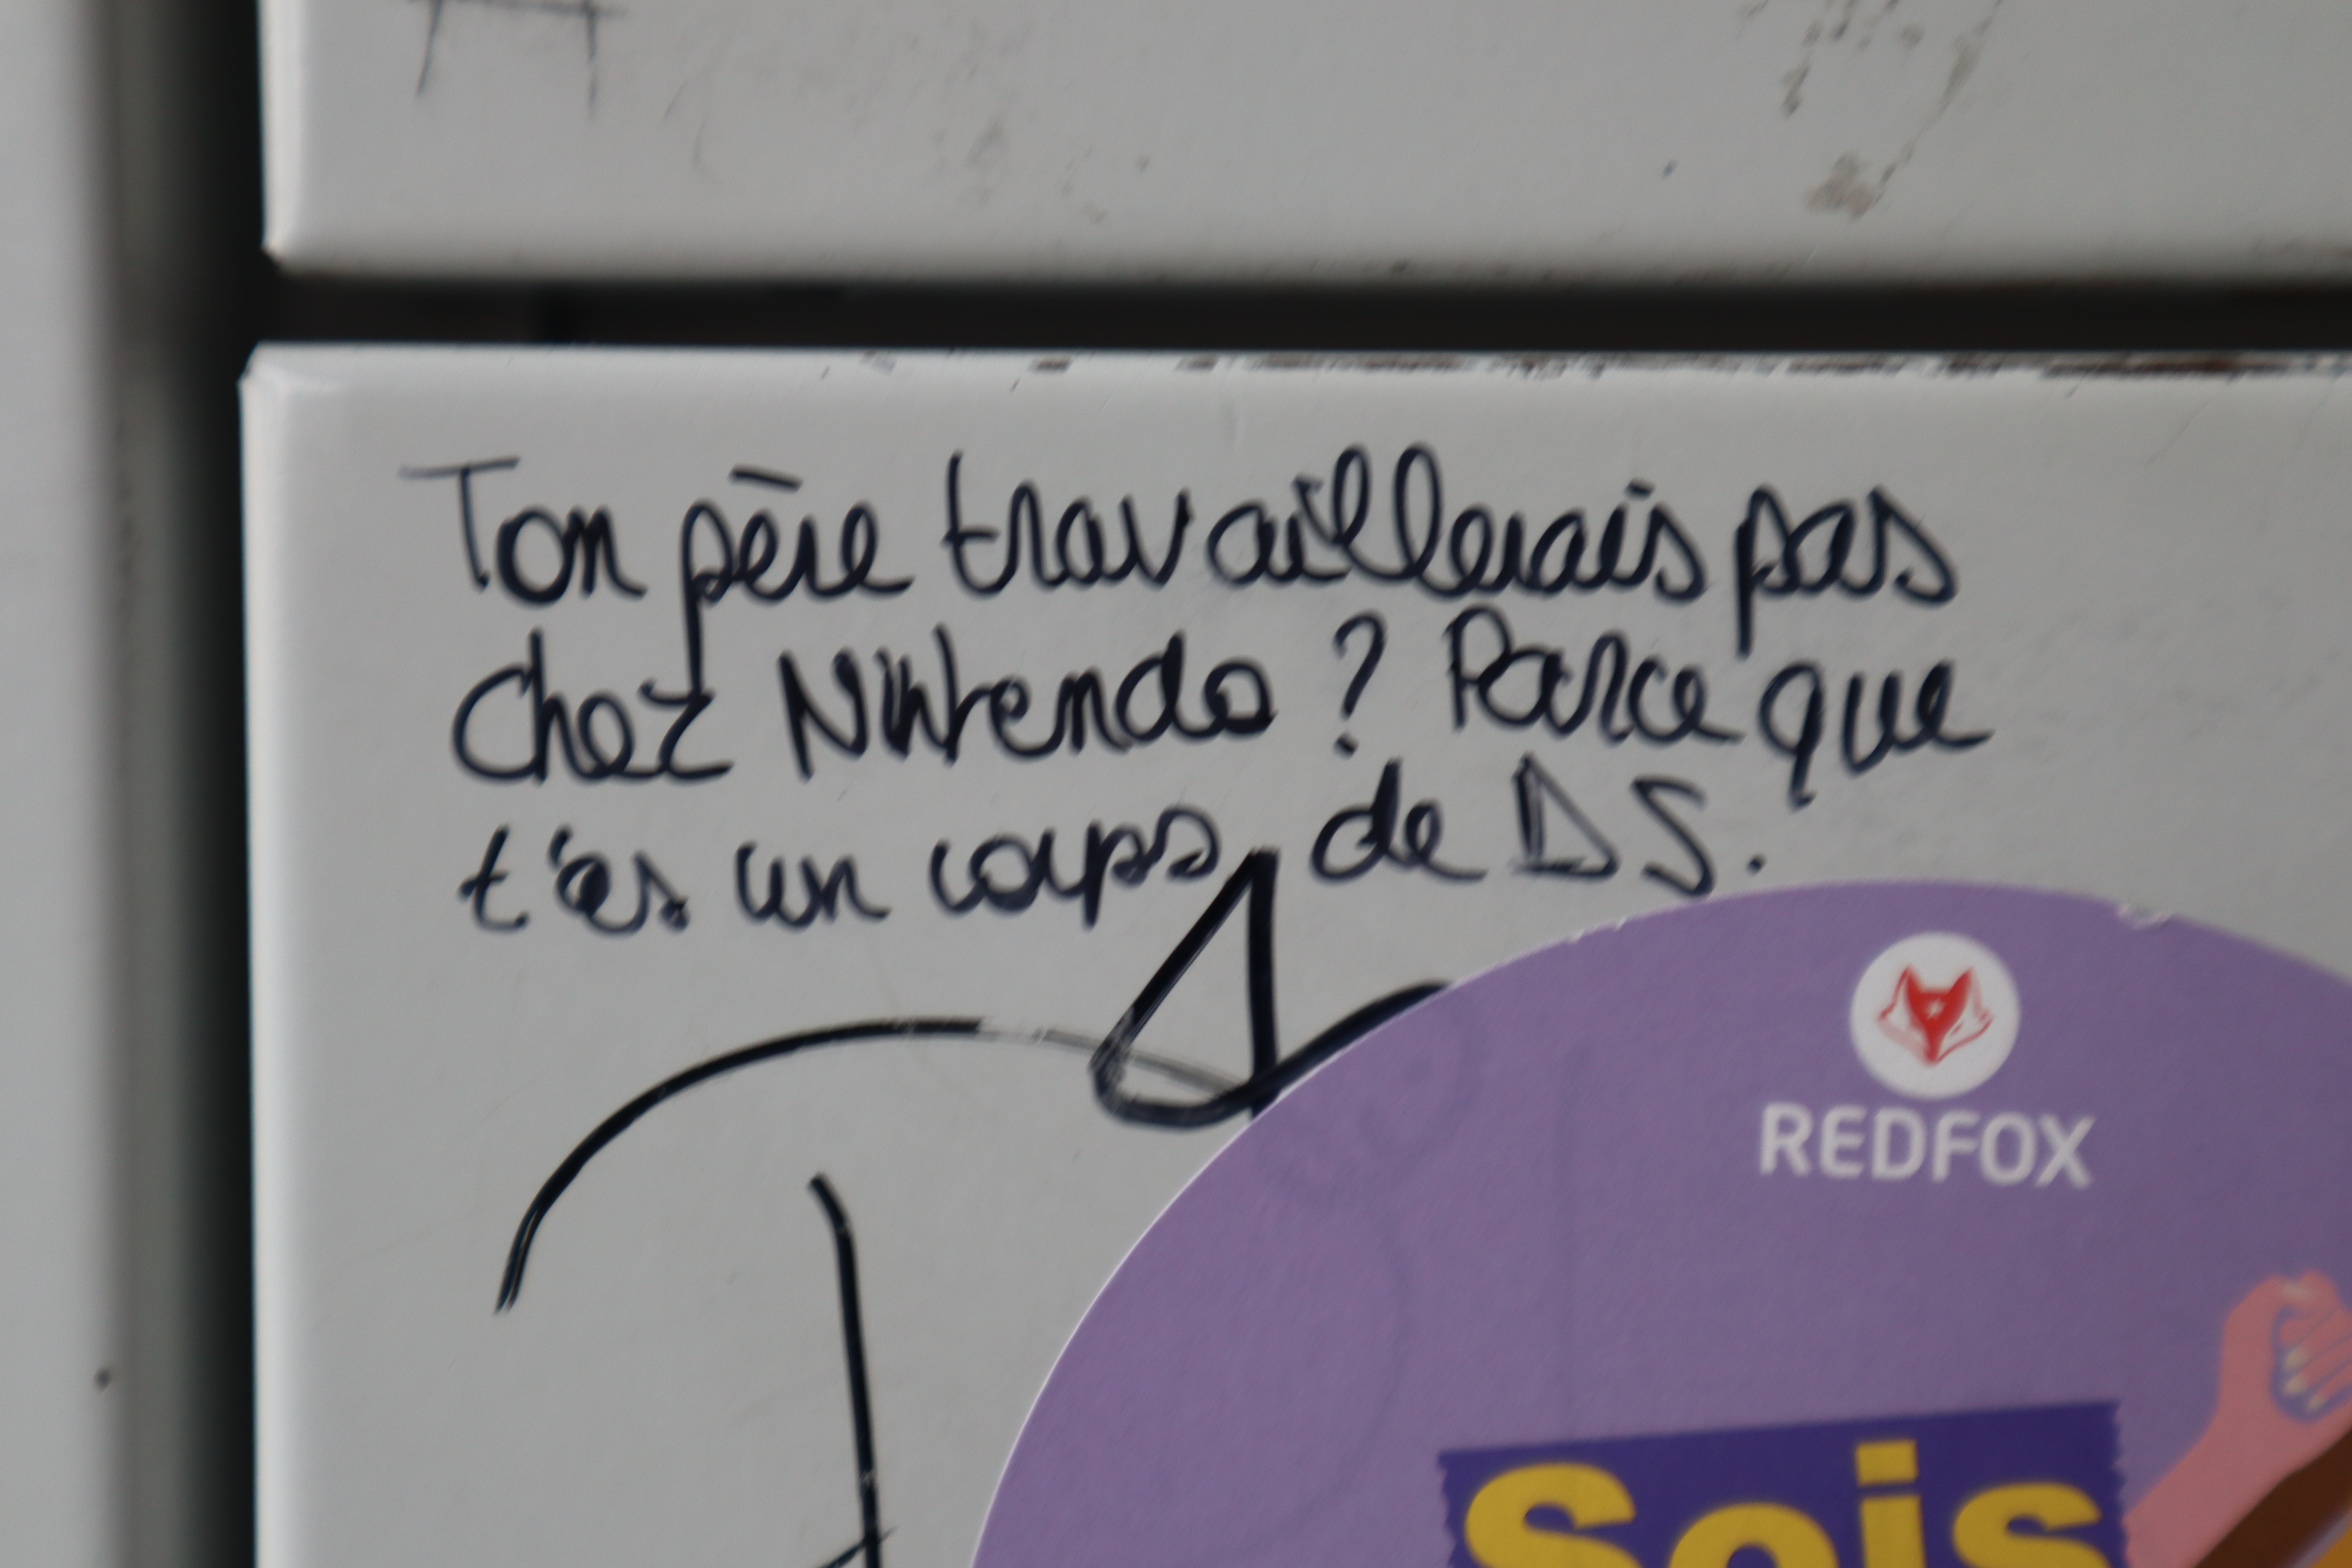 Ton père travaillerais pas
chez Nintendo ? Parce que
t'es un corps de DS.
REDFOX
Sois